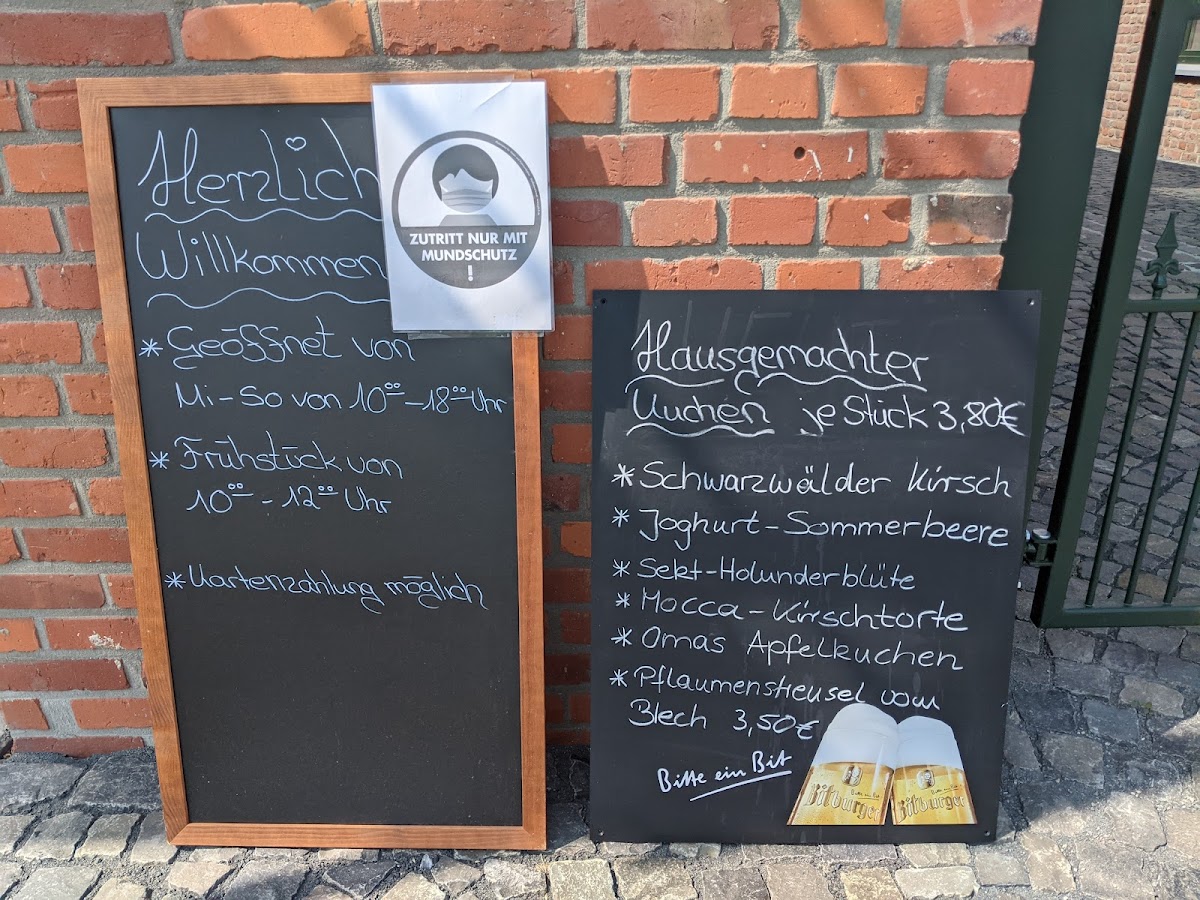 Herzlich
Willkommen
* Geöffnet von
Mi-So von 10⁰⁰-18⁰⁰ Uhr
* Frühstück von
10⁰⁰ - 12⁰⁰ Uhr
* Kartenzahlung möglich
ZUTRITT NUR MIT
MUNDSCHUTZ
!
Hausgemachter
Kuchen je Stück 3,80€
* Schwarzwälder Kirsch
* Joghurt-Sommerbeere
* Sekt-Holunderblüte
* Mocca-Kirschtorte
* Omas Apfelkuchen
* Pflaumenstreusel vom
Blech 3,50€
Bitte ein Bit
Bitte ein Bit
Bitburger
Bitte ein Bit
Bitburger